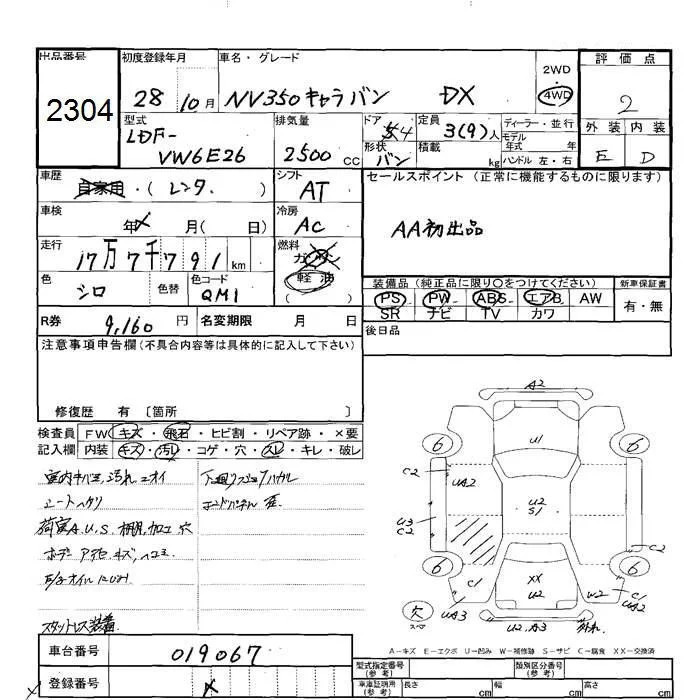 出品番号 2304
初度登録年月 28 10月
車名・グレード NV350キャラバン DX
2WD・4WD
評価点 2
型式 LDF-VW6E26
排気量 2500 cc
ドア 4
形状 バン
定員 3(9)人
積載 kg
ディーラー・並行
モデル年式 年
ハンドル 左・右
外装 E
内装 D
車歴 自家用・(レンタ)
シフト AT
セールスポイント(正常に機能するものに限ります)
AA初出品
車検 年 月( 日)
冷房 AC
走行 17万7千791km
燃料 ガソリン 軽油 ( )
色 シロ
色替
色コード QM1
装備品(純正品に限り○をつけてください)
PS PW ABS エアB AW
SR ナビ TV カワ
新車保証書 有・無
R券 9,160円
名変期限 月 日
後日品
注意事項申告欄(不具合内容等は具体的に記入して下さい)
修復歴 有 〔箇所 〕
検査員記入欄
FW キズ・飛石・ヒビ割・リペア跡・×要
内装 キズ・汚レ・コゲ・穴・スレ・キレ・破レ
室内キバミ、汚れ、ニオイ
シートヘタリ
荷室A.U.S. 棚、加工穴
ボデー アセ、キズ、ヘコミ
スタットレス装着
下廻リ
エンドパネル
A2
U1
6 6
C2 UA2
U2 S1
U3 C2
C2
6 6
C1 XX U2 W2
欠 UA3 U2.A3 C2 UA2
A-キズ E-エクボ U-凹み W-補修跡 S-サビ C-腐食 XX-交換済
車台番号 019067
登録番号 ×
型式指定番号(参考)
類別区分番号(参考)
車庫証明用(参考) 長さ cm 幅 cm 高さ cm